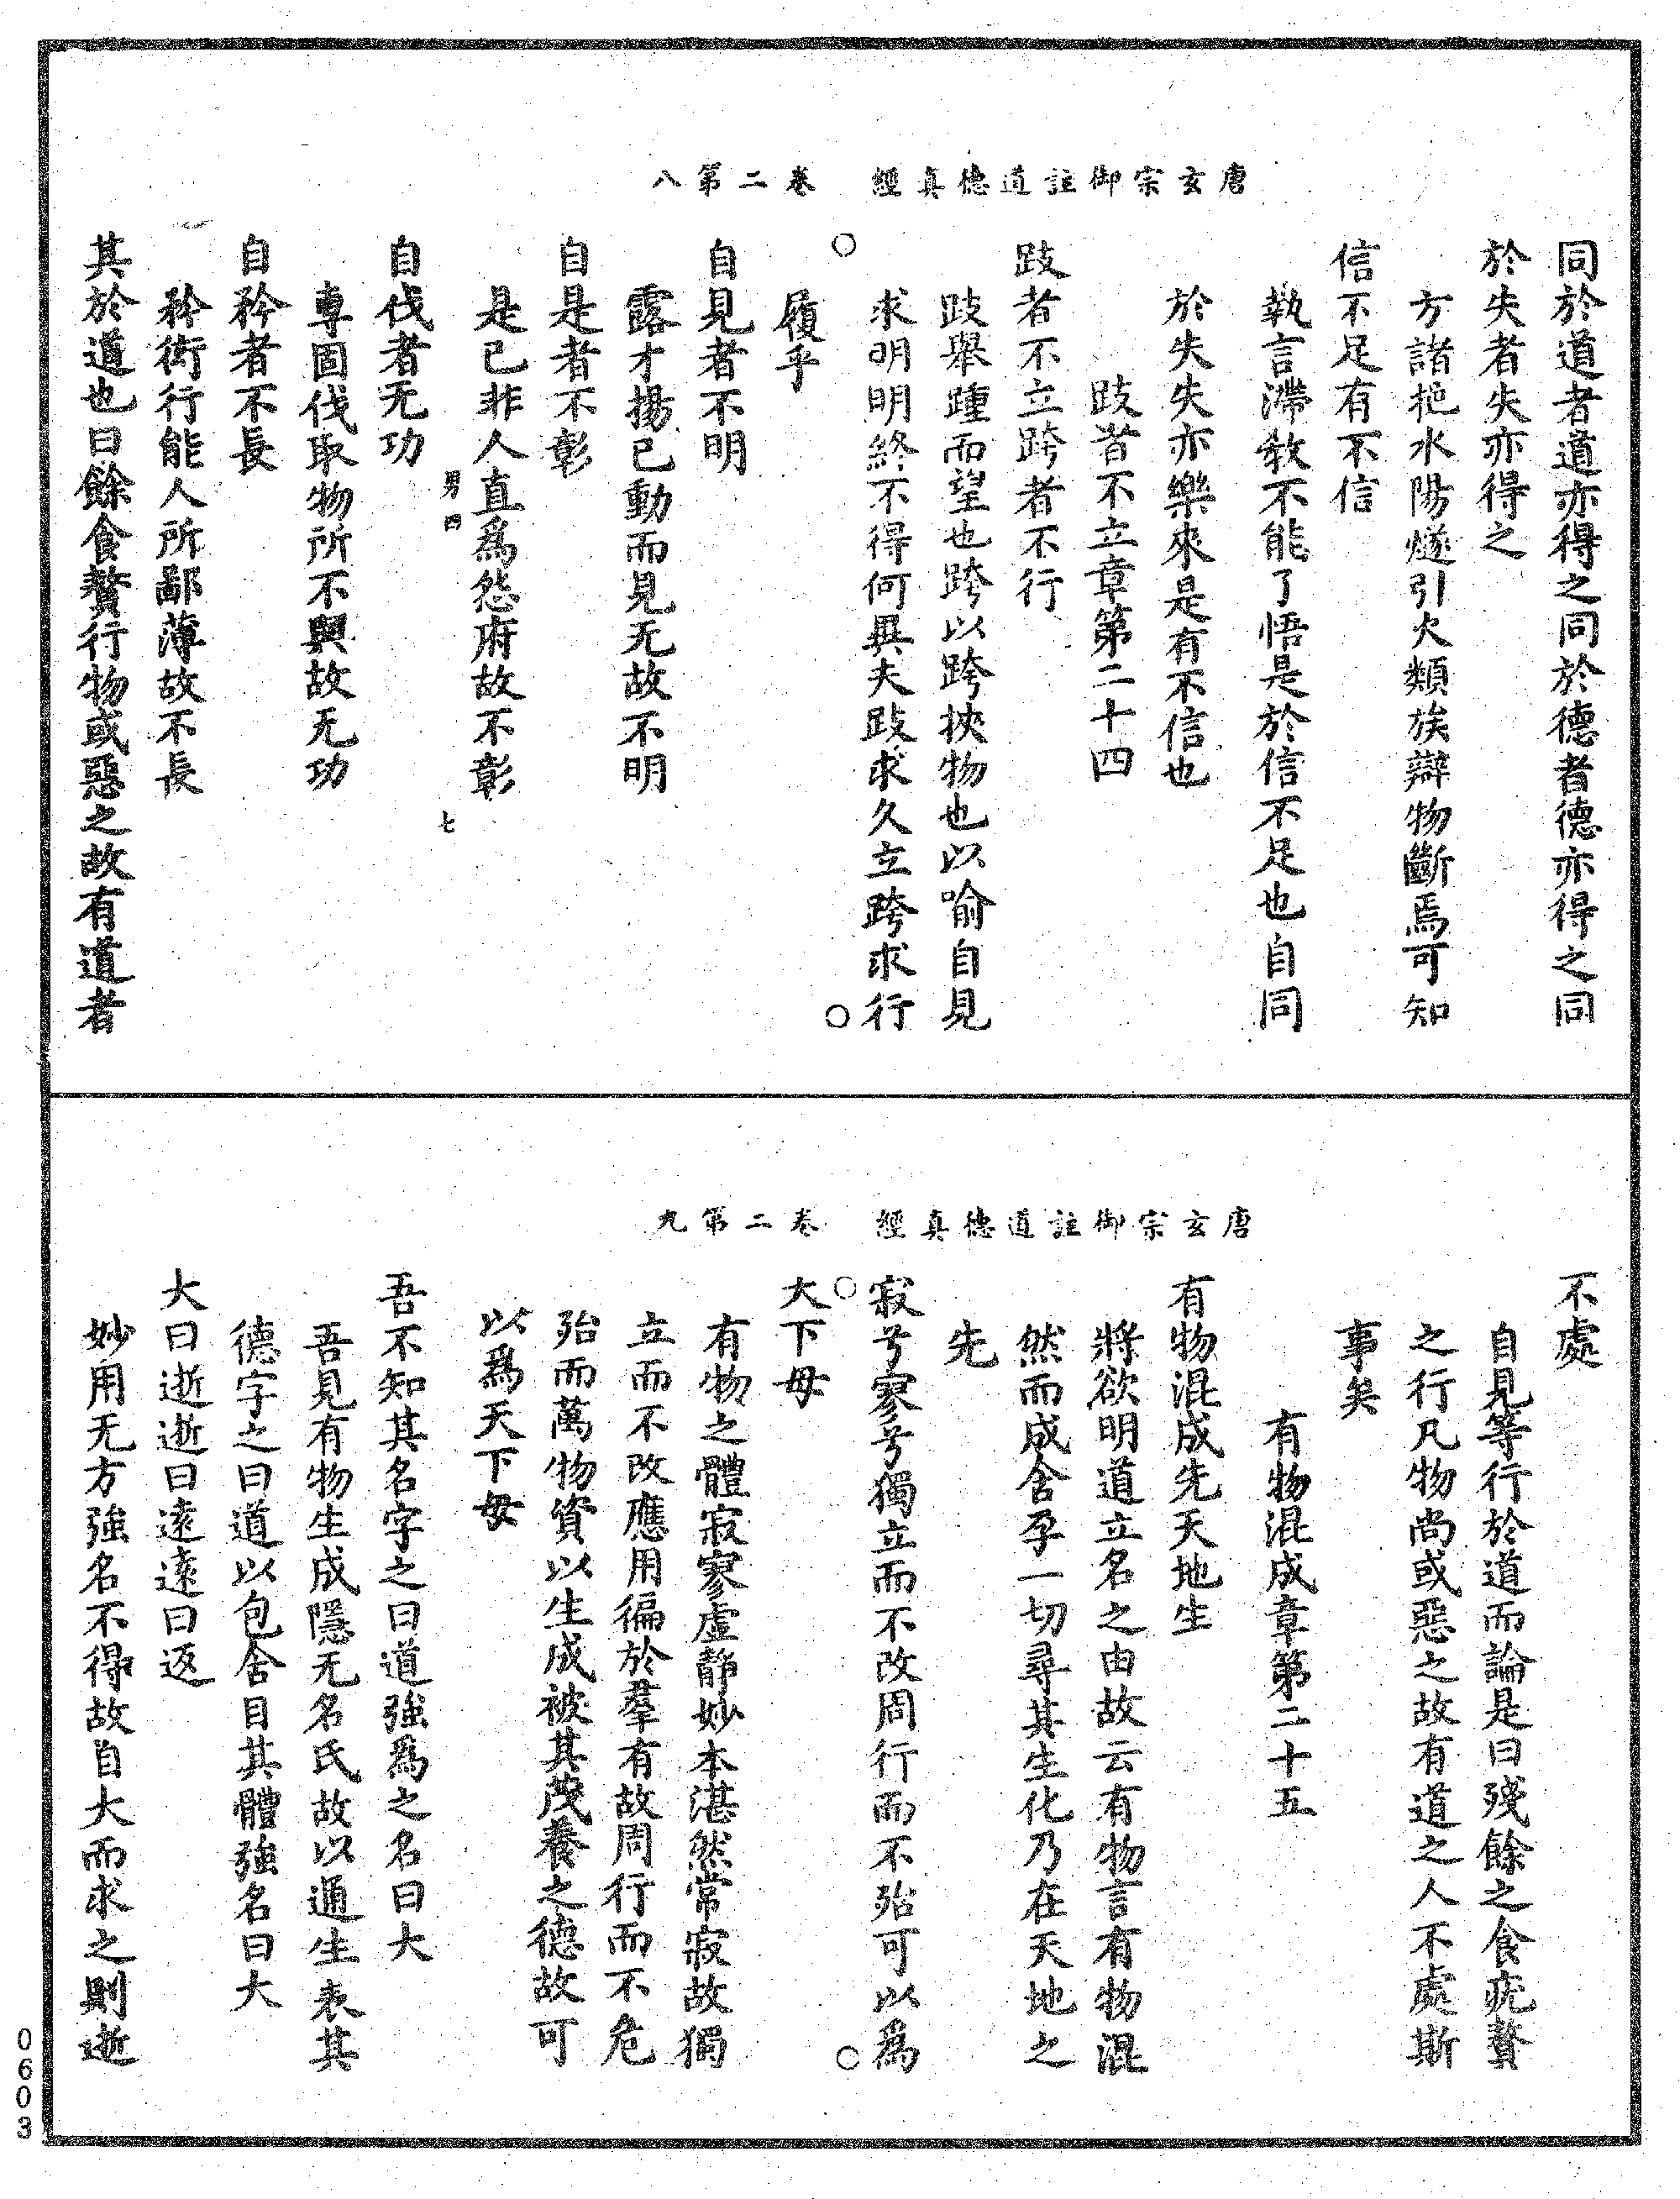 唐玄宗御註道德真經　卷二第八
同於道者道亦得之同於德者德亦得之同
於失者失亦得之
方諸挹水陽燧引火類族辯物斷焉可知
信不足有不信
執言滯教不能了悟是於信不足也自同
於失失亦樂來是有不信也
跂者不立章第二十四
跂者不立跨者不行
跂舉踵而望也跨以跨挾物也以喻自見
求明明終不得何異夫跂求久立跨求行
履乎
自見者不明
露才揚己動而見无故不明
自是者不彰
是己非人直爲怨府故不彰
男四　七
自伐者无功
專固伐取物所不與故无功
自矜者不長
矜衒行能人所鄙薄故不長
其於道也曰餘食贅行物或惡之故有道者
唐玄宗御註道德真經　卷二第九
不處
自見等行於道而論是曰殘餘之食疣贅
之行凡物尚或惡之故有道之人不處斯
事矣
有物混成章第二十五
有物混成先天地生
將欲明道立名之由故云有物言有物混
然而成含孕一切尋其生化乃在天地之
先
寂兮寥兮獨立而不改周行而不殆可以爲
大下母
有物之體寂寥虛靜妙本湛然常寂故獨
立而不改應用徧於羣有故周行而不危
殆而萬物資以生成被其茂養之德故可
以爲天下母
吾不知其名字之曰道強爲之名曰大
吾見有物生成隱无名氏故以通生表其
德字之曰道以包含目其體強名曰大
大曰逝逝曰遠遠曰返
妙用无方強名不得故自大而求之則逝
0603